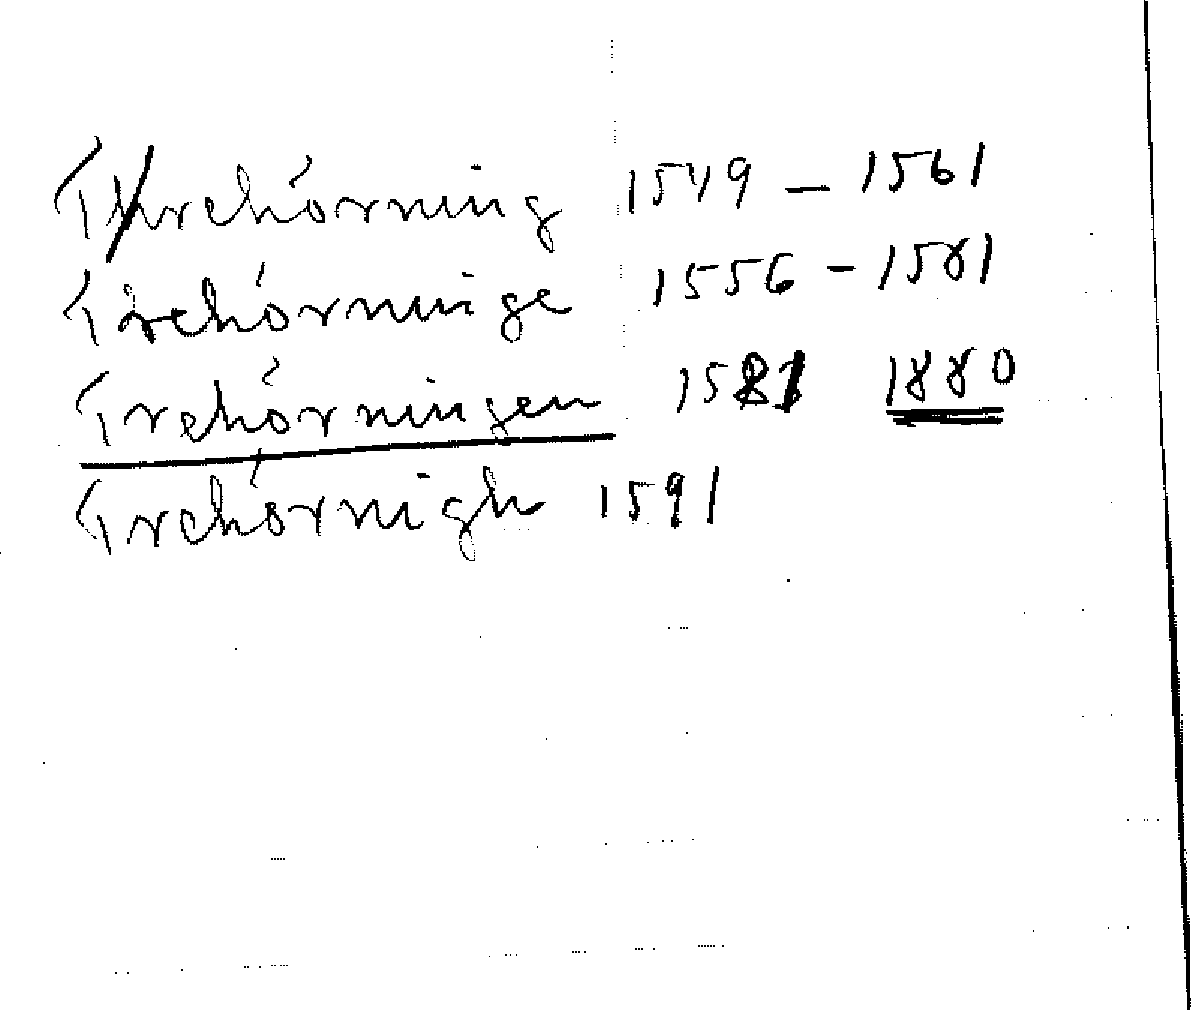 Threhórning 1549 – 1561
Trehórninge 1556 – 1581
Trehórningen 1581 1880
Trehórnigh 1591